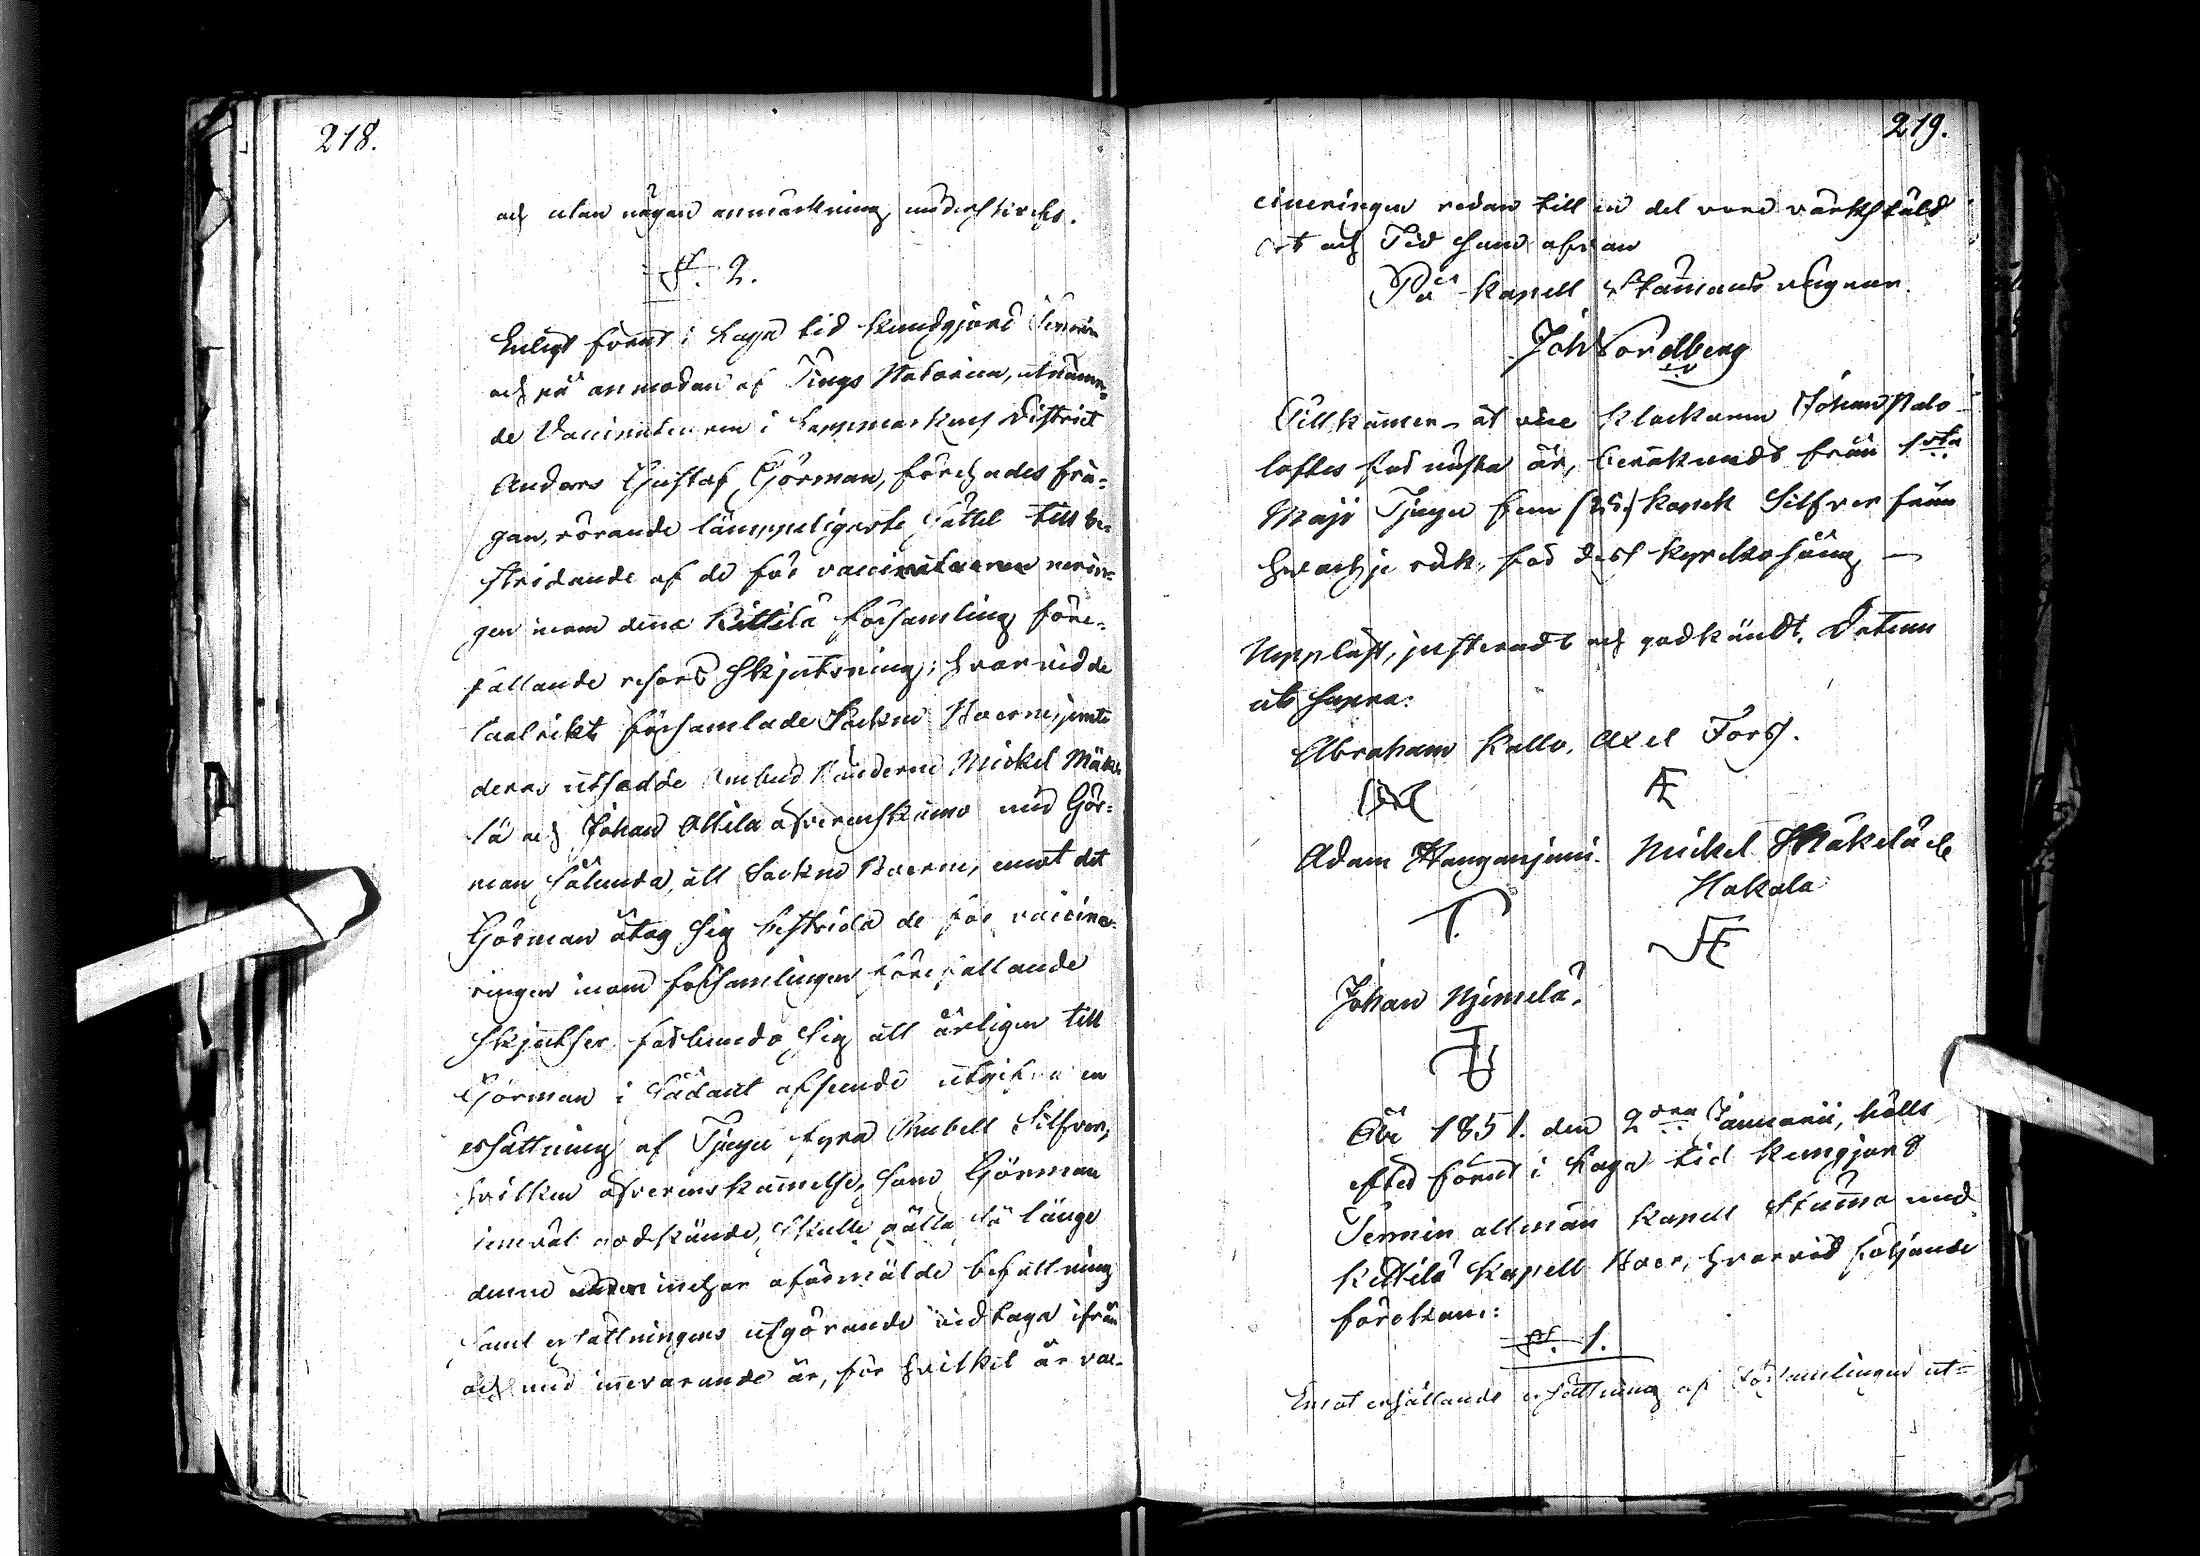 218.
och utan någon anmärkning underskrefs.
§. 2.
Enligt förut i Laga tid kundgjord Termin
och på anmodan af Tings Notarien, utnämn-
de Vaccinateuren i Lappmarkens District
Anders Gustaf Görman, förehades frå-
gan, rörande lämpeligaste sättet till be-
stridande af de för vaccinateuren
gen inom denna Kittilä församling före-
fallande resors Skjutsning; hvarvid de
talrikt församlade Sockne Boerne, jemte
deras utsedde Ombud Bönderne Mickel Mäke-
lä och Johan Ollila öfverenskommo med Gör-
man sålunda, att Sockne Boerne, emot det
Görman åtog sig bestrida de för vaccine-
ringen inom församlingen förefallande
Skjutser förbundo sig att årligen till
Görman i sådant afseende utgifva en
ersättning af Tjugu fyra Rubel Silfver,
hvilken öfverenskommelse, som Görman
jemväl godkände, skulle gälla så länge
denne innehar oförmälde befattning
samt ersättningens utgörande vidtaga ifrån
och med innevarande år, för hvilket år vac-
219.
cineringen redan till en del vore värkstäld
Ort och Tid som ofvan
På Kapell Stämmans vägnar.
Joh Nordberg
Tillkommer at vice Klockaren Johan Palo-
loftes för nästa år, beräknadt från 1sta
Maji Tjugu fem (25) Kopek Silfver från
hvarje rök, för dess Kyrko sång, —
Uppläst, justeradt och godkändt. Datum
uts supra:
Abraham Kallo. Axel Fors.
Adam Hanganjemi. Mickel Mäkelä el.
Hakala
Johan Njemelä.
År 1851. den 2dra Januarii, hölls
efter förut i Laga tid kungjord
Termin allmän Kapell Stämma med
Kittilä Kapell Boer, hvarvid följande
förekom:
§. 1.
Emot erhållande ersättning af församlingen ut-